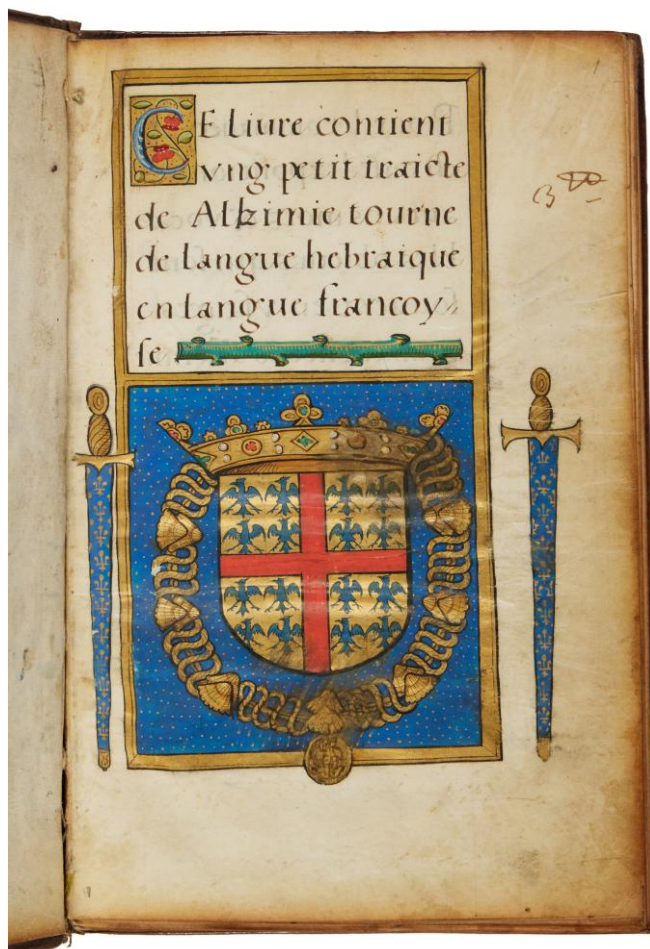 CE liure contient
vng petit traicte
de Alkimie tourne
de langue hebraique
en langue francoy-
se